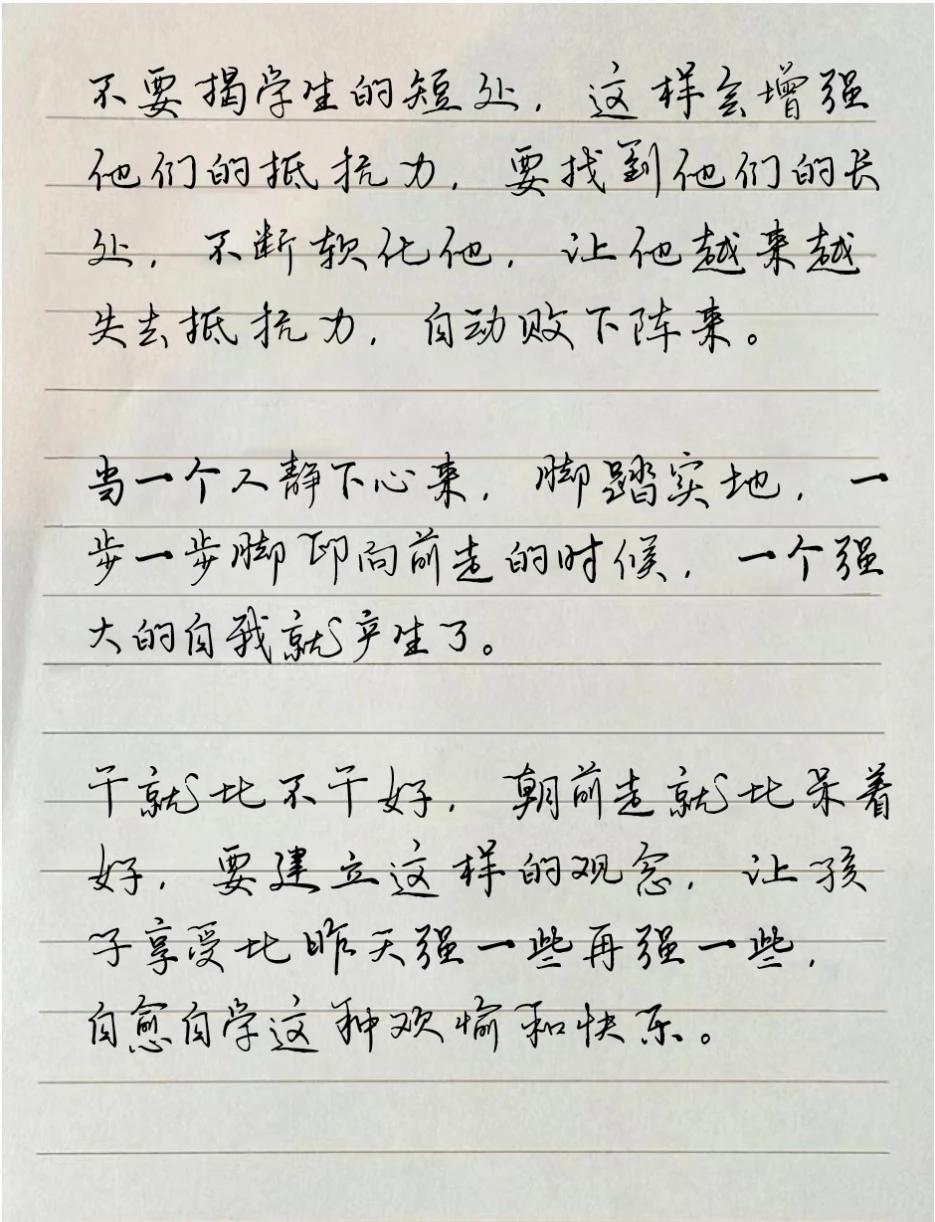 不要揭学生的短处，这样会增强
他们的抵抗力，要找到他们的长
处，不断软化他，让他越来越
失去抵抗力，自动败下阵来。
当一个人静下心来，脚踏实地，一
步一步脚印向前走的时候，一个强
大的自我就产生了。
干就比不干好，朝前走就比呆着
好，要建立这样的观念，让孩
子享受比昨天强一些再强一些，
自愈自学这种欢愉和快乐。